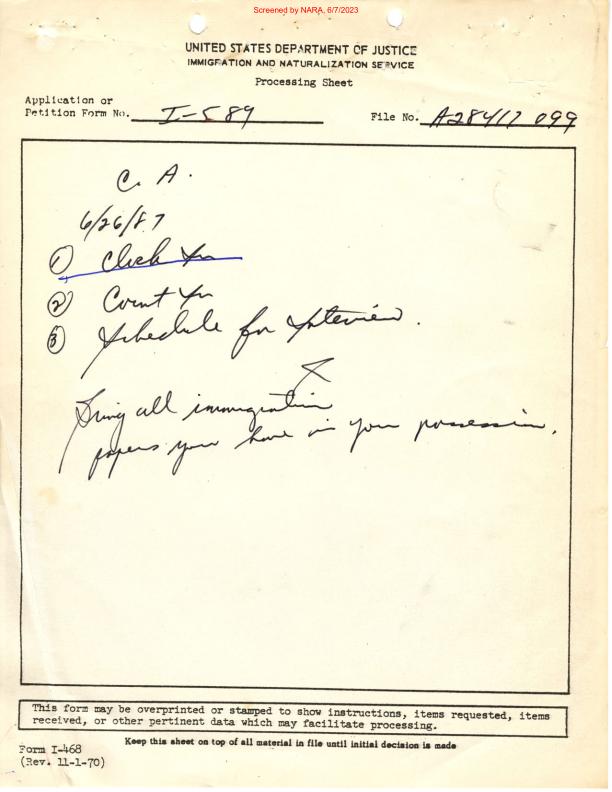 Screened by NARA, 6/7/2023
UNITED STATES DEPARTMENT OF JUSTICE
IMMIGRATION AND NATURALIZATION SERVICE
Processing Sheet
Application or
Petition Form No. I-589 File No. A28417 099
C. A.
6/26/87
① Clock In
② Count In
③ Schedule for Interview.
Bring all immigration
papers you have in your possession.
This form may be overprinted or stamped to show instructions, items requested, items
received, or other pertinent data which may facilitate processing.
Keep this sheet on top of all material in file until initial decision is made
Form I-468
(Rev. 11-1-70)